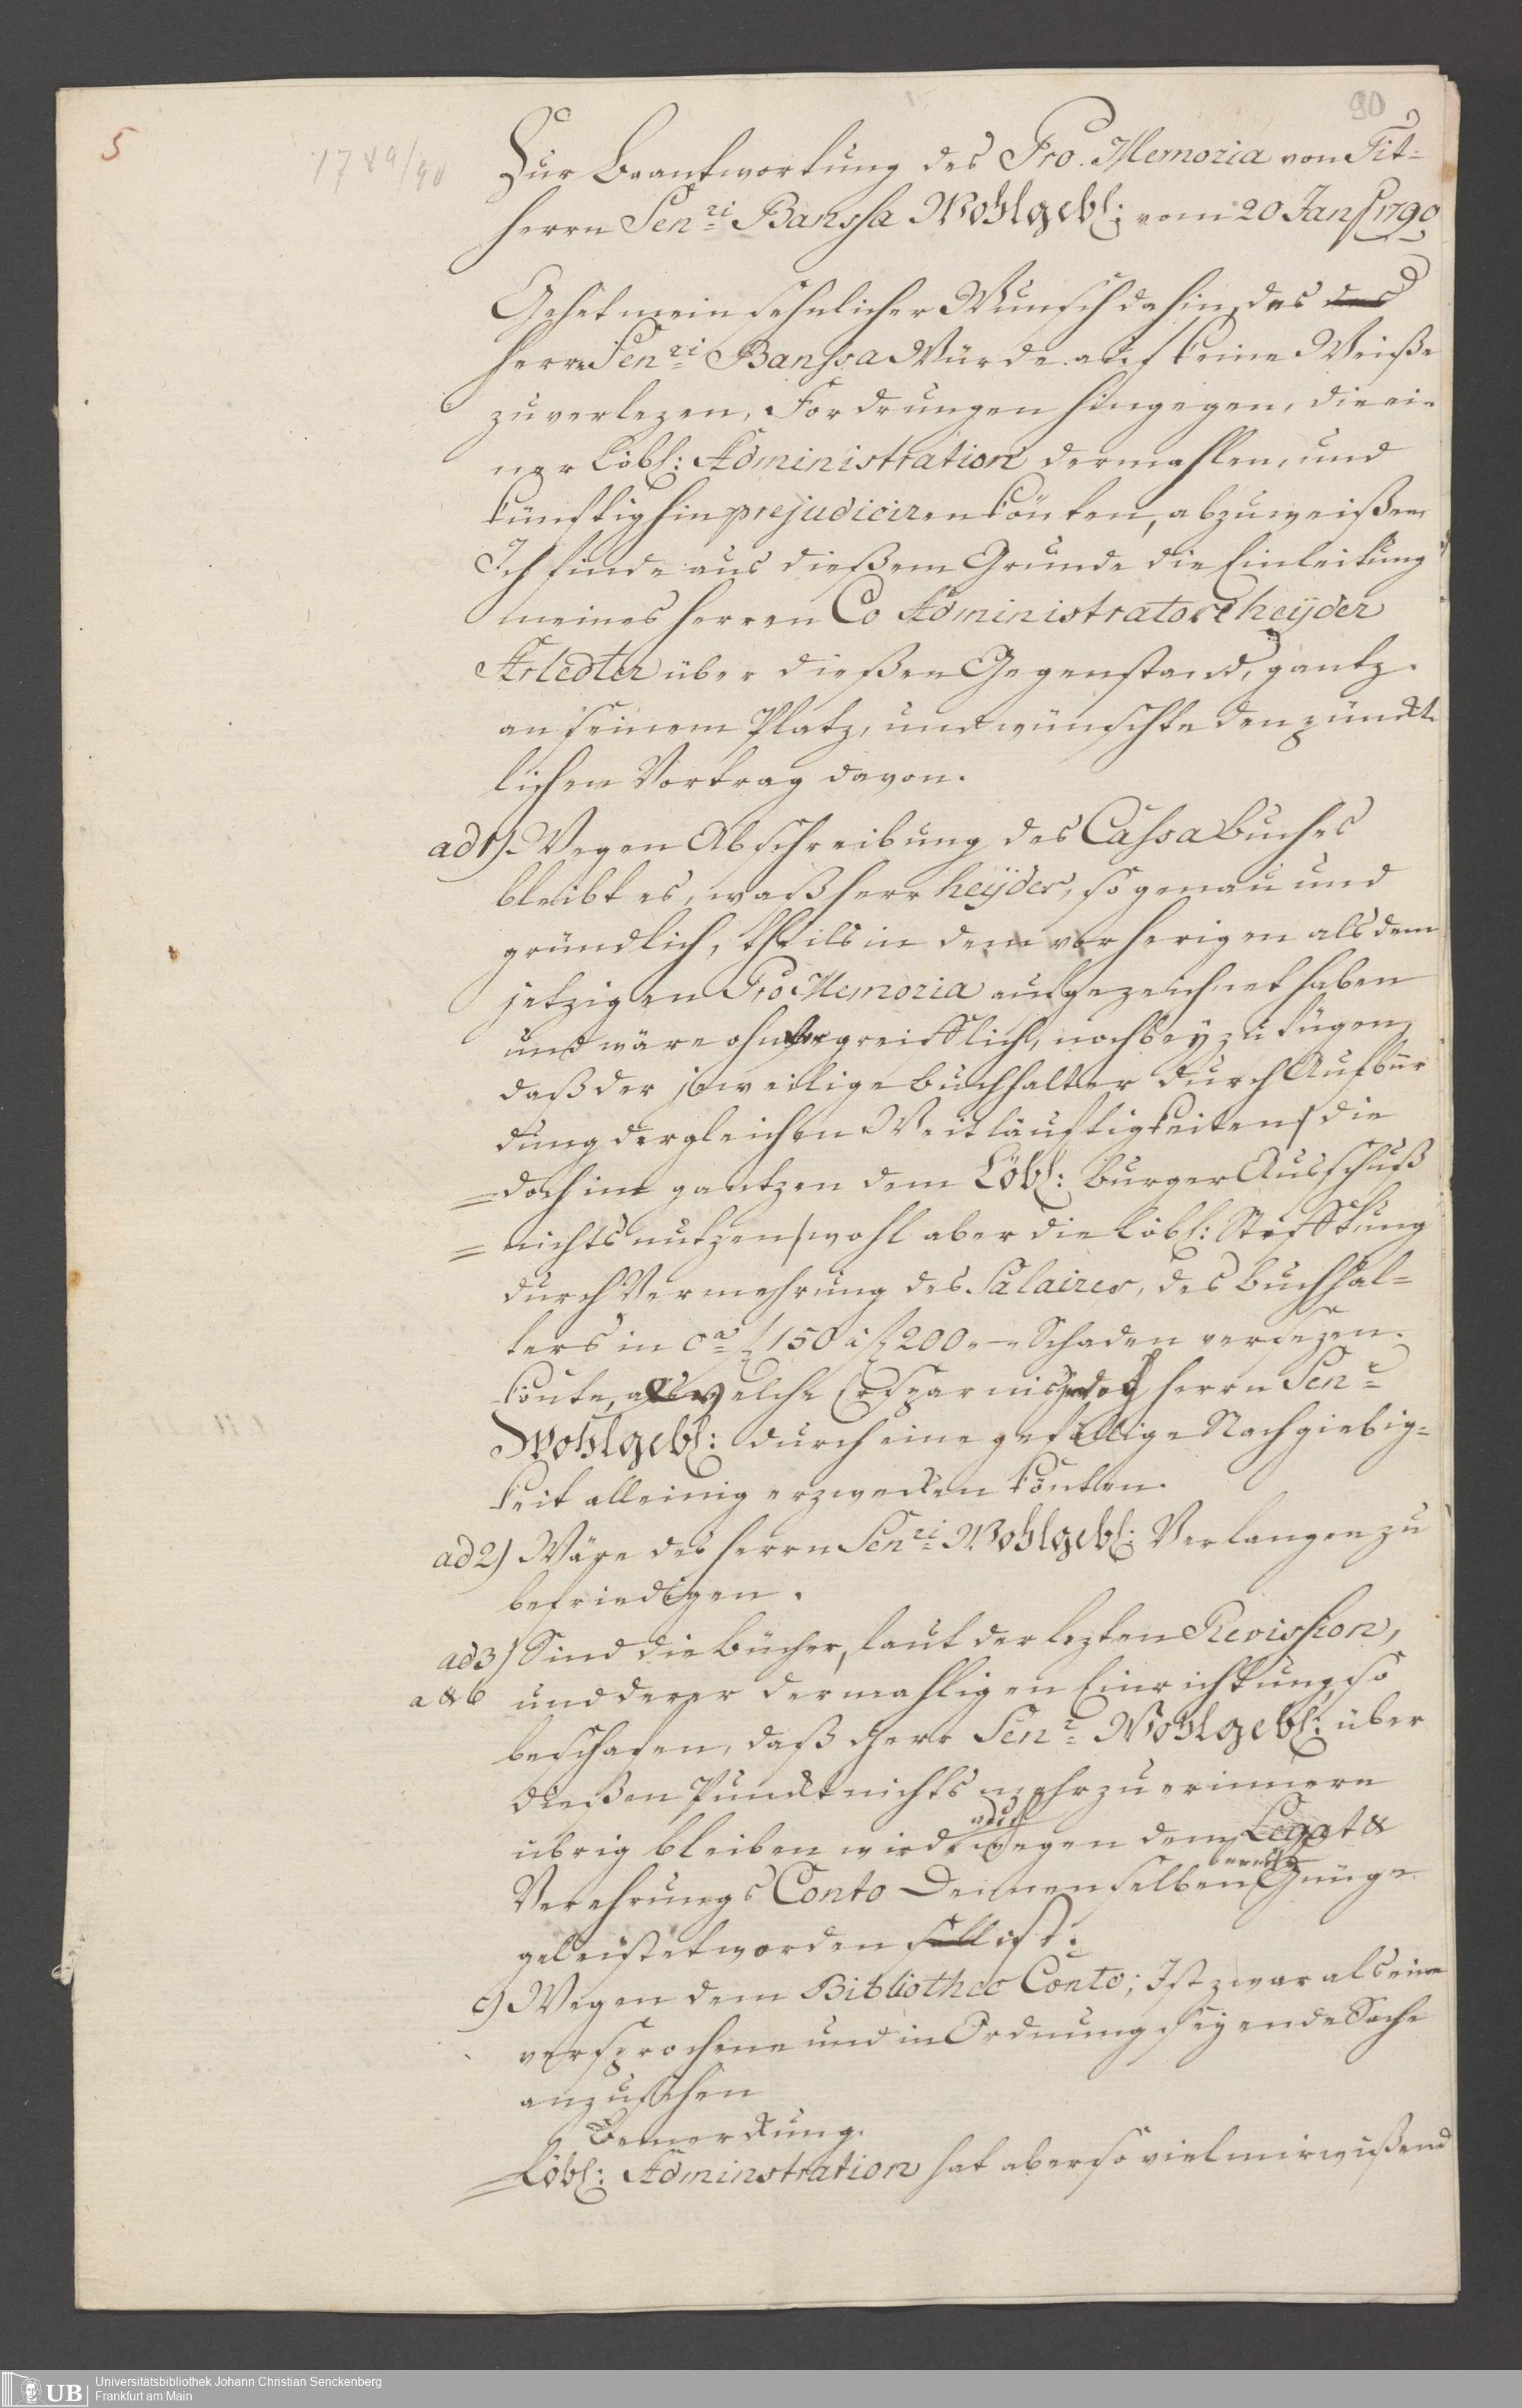 90
5
1789/90
Zur Beantwortung des Pro Memoria von Tit=
Herrn Sen:ri Banssa Wohlgebl: vom 20 Jan 1790
Gehet mein sehnlicher Wunsch dahin, des des
Herrn Sen:ri Banssa Würde auf keine Weiße
zu verlezen, Fordrungen hingegen, die ei-
ner Löbl: Administration dermahlen, und
künftighin prejudiciren könten, abzuweißen
Ich finde aus dießem Grunde die Einleitung
meines Herren Co Administratore Heÿder
Arledter über dießen Gegenstand, gantz
an seinem Platz, und wünschte den pünckt-
lichen Vortrag davon.
ad 1). Wegen Abschreibung des Cassa Buches
bleibt es, waß Herr Heÿder, so genau und
gründlich, theils in dem vorherigen als dem
jetzigen Pro Memoria aufgezeichnet haben
und wäre ohnbegreifflich, noch beyzufügen,
daß der jeweilige Buchhalter durch Aufbür
dung dergleichen Weitläuftigkeiten / die
= doch im gantzen dem Löbl: Burger Ausschuß
= nichts nutzen / wohl aber die Löbl: Stifftung
durch Vermehrung des Salaires, des Buchhal=
ters in ca f 150 à f 200 „—„ Schaden versezen
könte, welche Ersparnis jedoch Herrn Sen:r
Wohlgebl: durch eine gefällige Nachgiebig=
keit alleinig erzwecken könten.
ad 2) Wäre des Herrn Sen:ri Wohlgebl: Verlangen zu
befriedigen.
ad 3) Sind die Bücher, laut der lezten Revission,
a & b und derer dermahligen Einrichtung so
beschafen, daß Herr Sen:r Wohlgebl: über
dießen Punckt nichts mehr zu erinnern
übrig bleiben wird, auch wegen dem Legat &
Verehrungs Conto Deinenselben bereits Genüge
geleistet worden soll ist.
c) Wegen dem Bibliothec Conto; Ist zwar als eine
versprochene und in Ordnung seyende Sache
anzusehen
Bemerckung.
Löbl: Adminstration hat aber so viel mir wißend
Universitätsbibliothek Johann Christian Senckenberg
Frankfurt am Main
UB